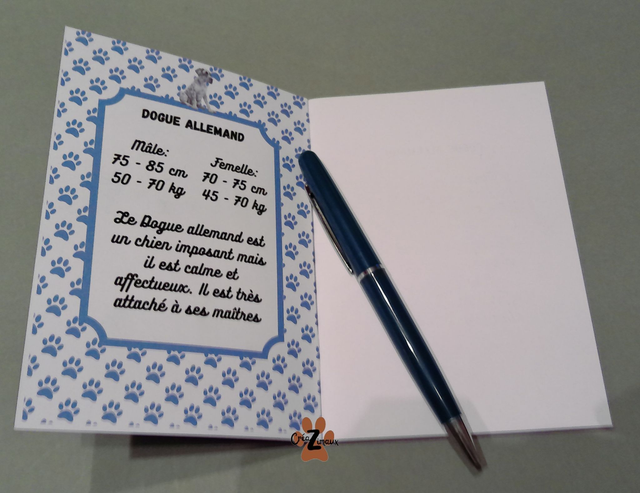 DOGUE ALLEMAND
Mâle:
75 - 85 cm
50 - 70 kg
Femelle:
70 - 75 cm
45 - 70 kg
Le Dogue allemand est
un chien imposant mais
il est calme et
affectueux. Il est très
attaché à ses maîtres
Créa Zimaux